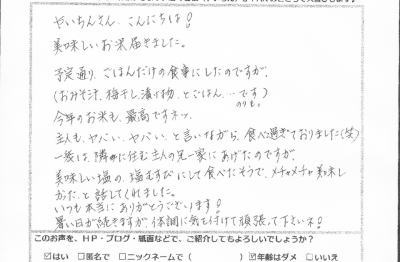 やいちさん、こんにちは!
美味しいお米届きました。
予定通り、ごはんだけの食事にしたのですが、
(おみそ汁、梅干し、漬け物、とごはん…です)
のりも。
今年のお米も、最高ですネッ
主人も、ヤバい、ヤバい、と言いながら、食べ過ぎておりました(笑)
一袋は、隣に住む主人の兄一家にあげたのですが、
美味しい塩の、塩むすびにして食べたそうで、メチャメチャ美味し
かった、と話してくれました。
いつも本当にありがとうございます!
暑い日が続きますが、体調に気を付けて頑張って下さいネ!
このお声を、HP・ブログ・紙面などで、ご紹介してもよろしいでしょうか?
☑はい □匿名で □ニックネームで( ) ☑年齢はダメ □いいえ